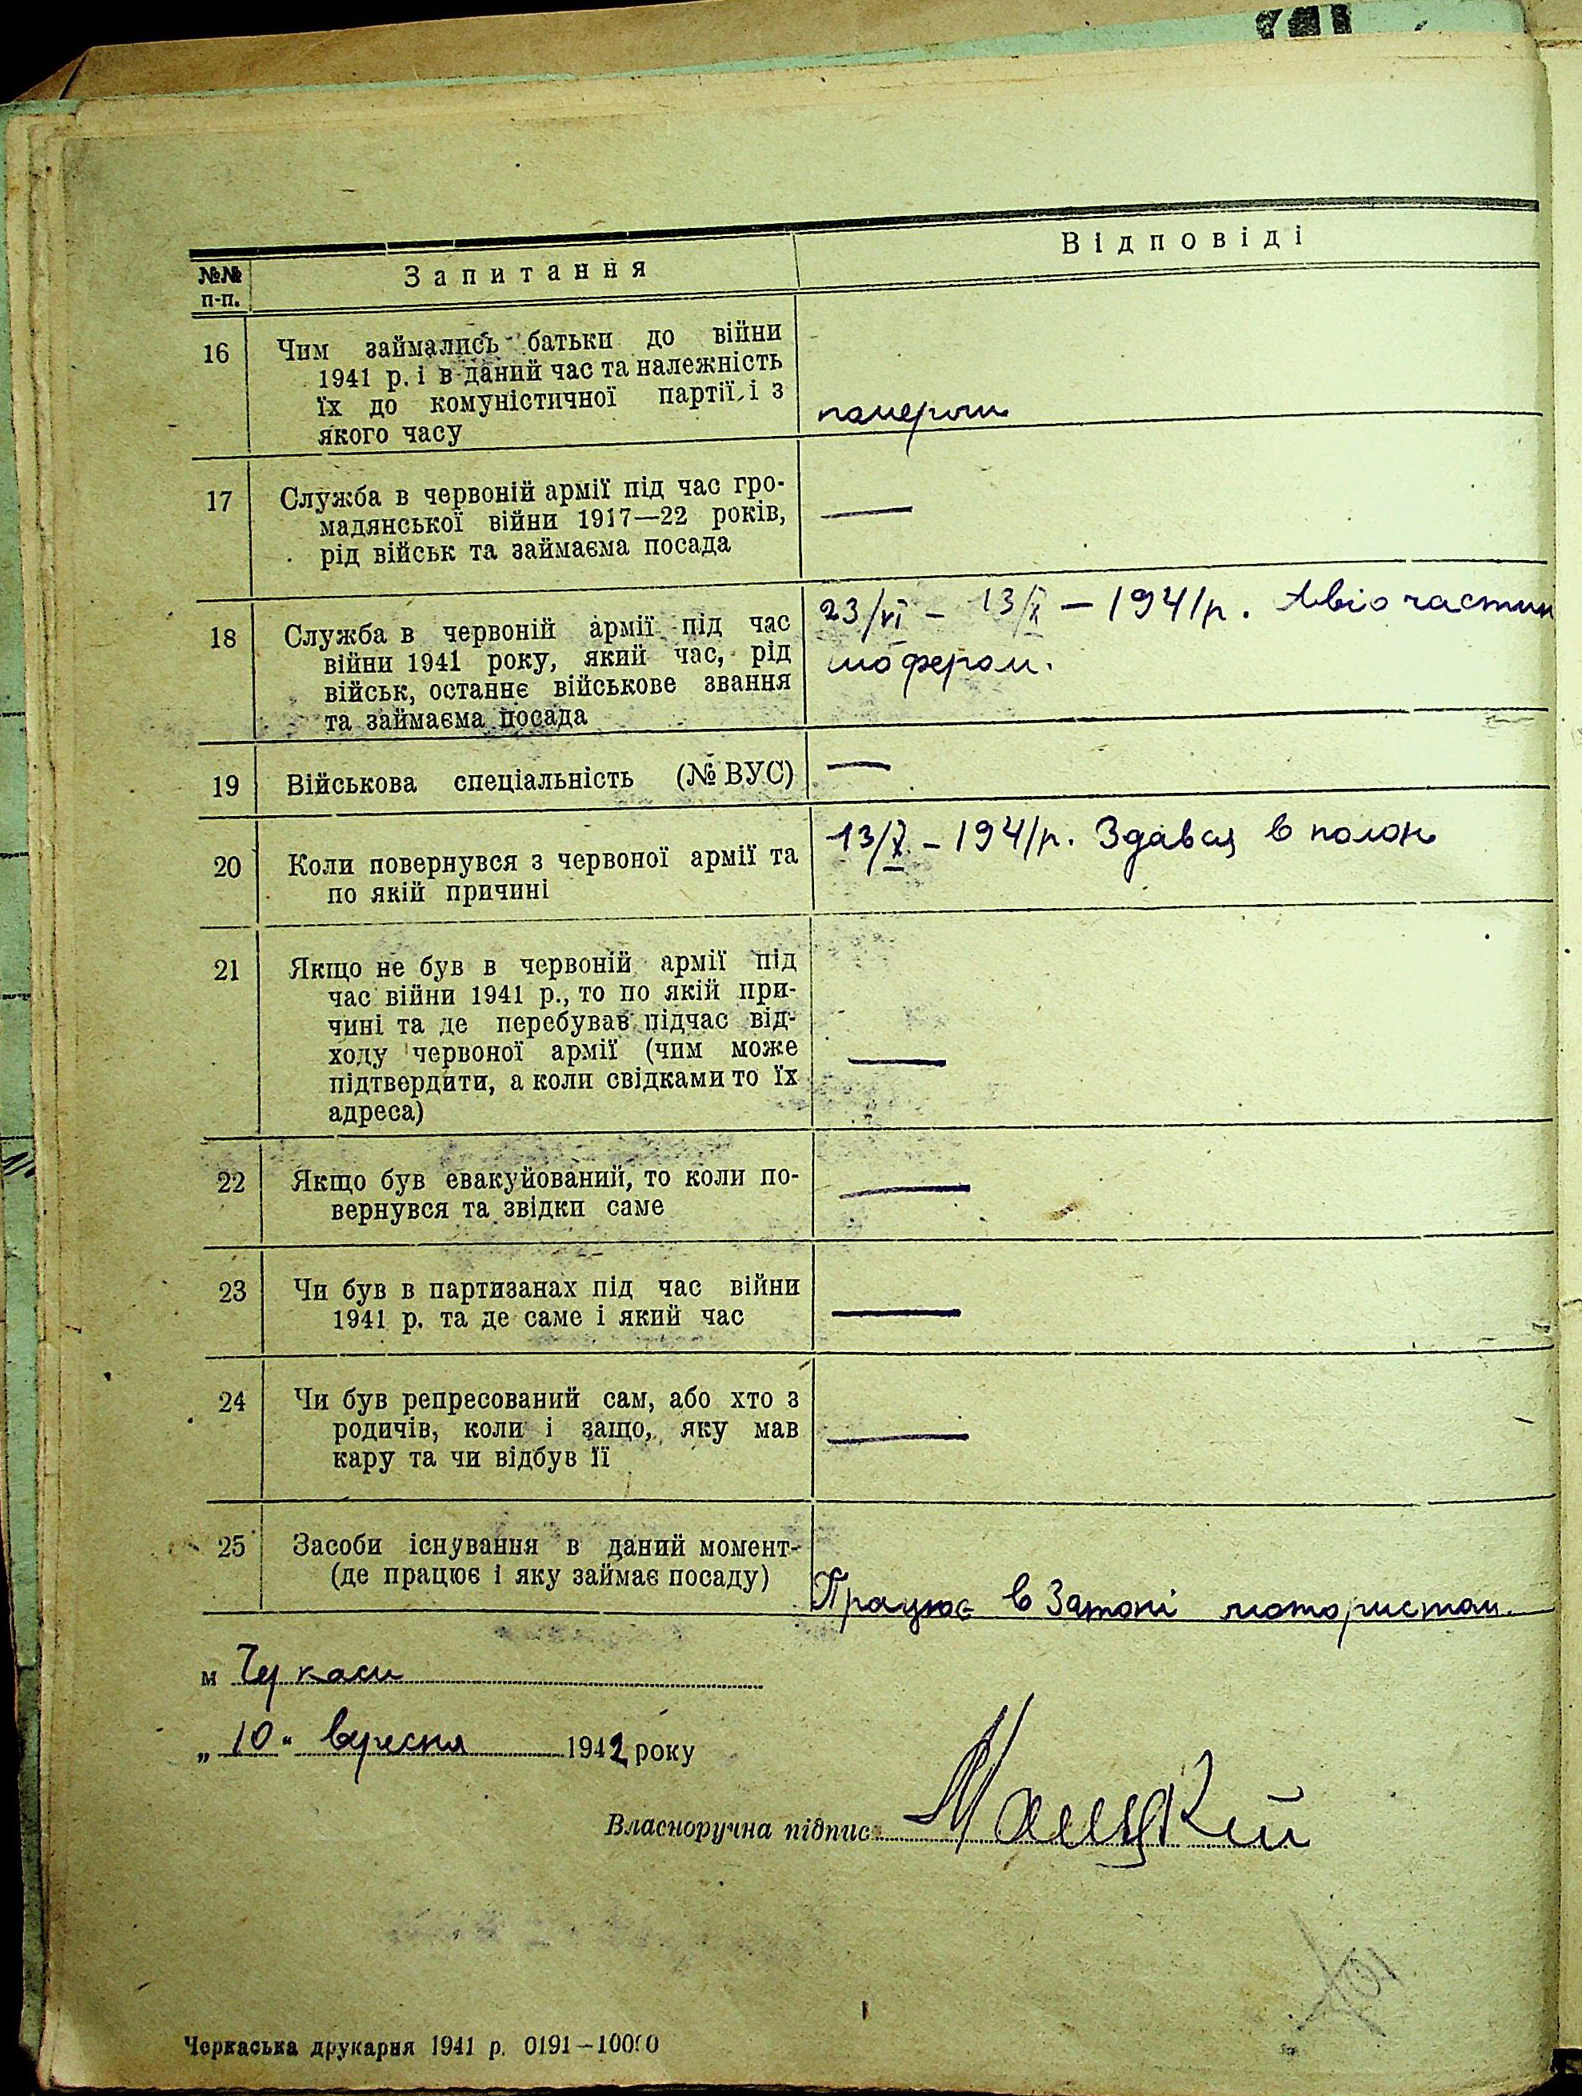 №№ п-п.
Запитання
Відповіді
16
Чим займались батьки до війни
1941 р. і в даний час та належність
їх до комуністичної партії, і з
якого часу
померли
17
Служба в червоній армії під час гро-
мадянської війни 1917—22 років,
рід військ та займаєма посада
—
18
Служба в червоній армії під час
війни 1941 року, який час, рід
військ, останнє військове звання
та займаєма посада
23/VI – 13/X – 1941 р. Авіо частин
шофером.
19
Військова спеціальність (№ ВУС)
—
20
Коли повернувся з червоної армії та
по якій причині
13/X – 1941 р. Здався в полон
21
Якщо не був в червоній армії під
час війни 1941 р., то по якій при-
чині та де перебував підчас від-
ходу червоної армії (чим може
підтвердити, а коли свідками то їх
адреса)
—
22
Якщо був евакуйований, то коли по-
вернувся та звідки саме
—
23
Чи був в партизанах під час війни
1941 р. та де саме і який час
—
24
Чи був репресований сам, або хто з
родичів, коли і защо, яку мав
кару та чи відбув її
—
25
Засоби існування в даний момент-
(де працює і яку займає посаду)
Працює в Затоні мотористом.
м Черкаси
„10" вересня 1942 року
Власноручна підпис:
Черкаська друкарня 1941 р. 0191—10000